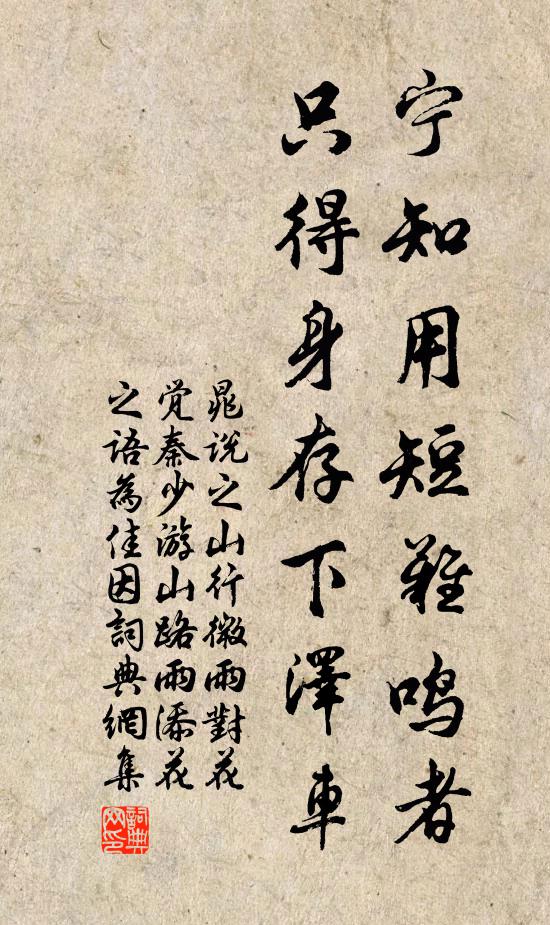 宁知用短难鸣者
只得身存下澤車
晁说之山行微雨對花
觉秦少游山路雨添花
之语為佳因詞典網集
詞典
网印